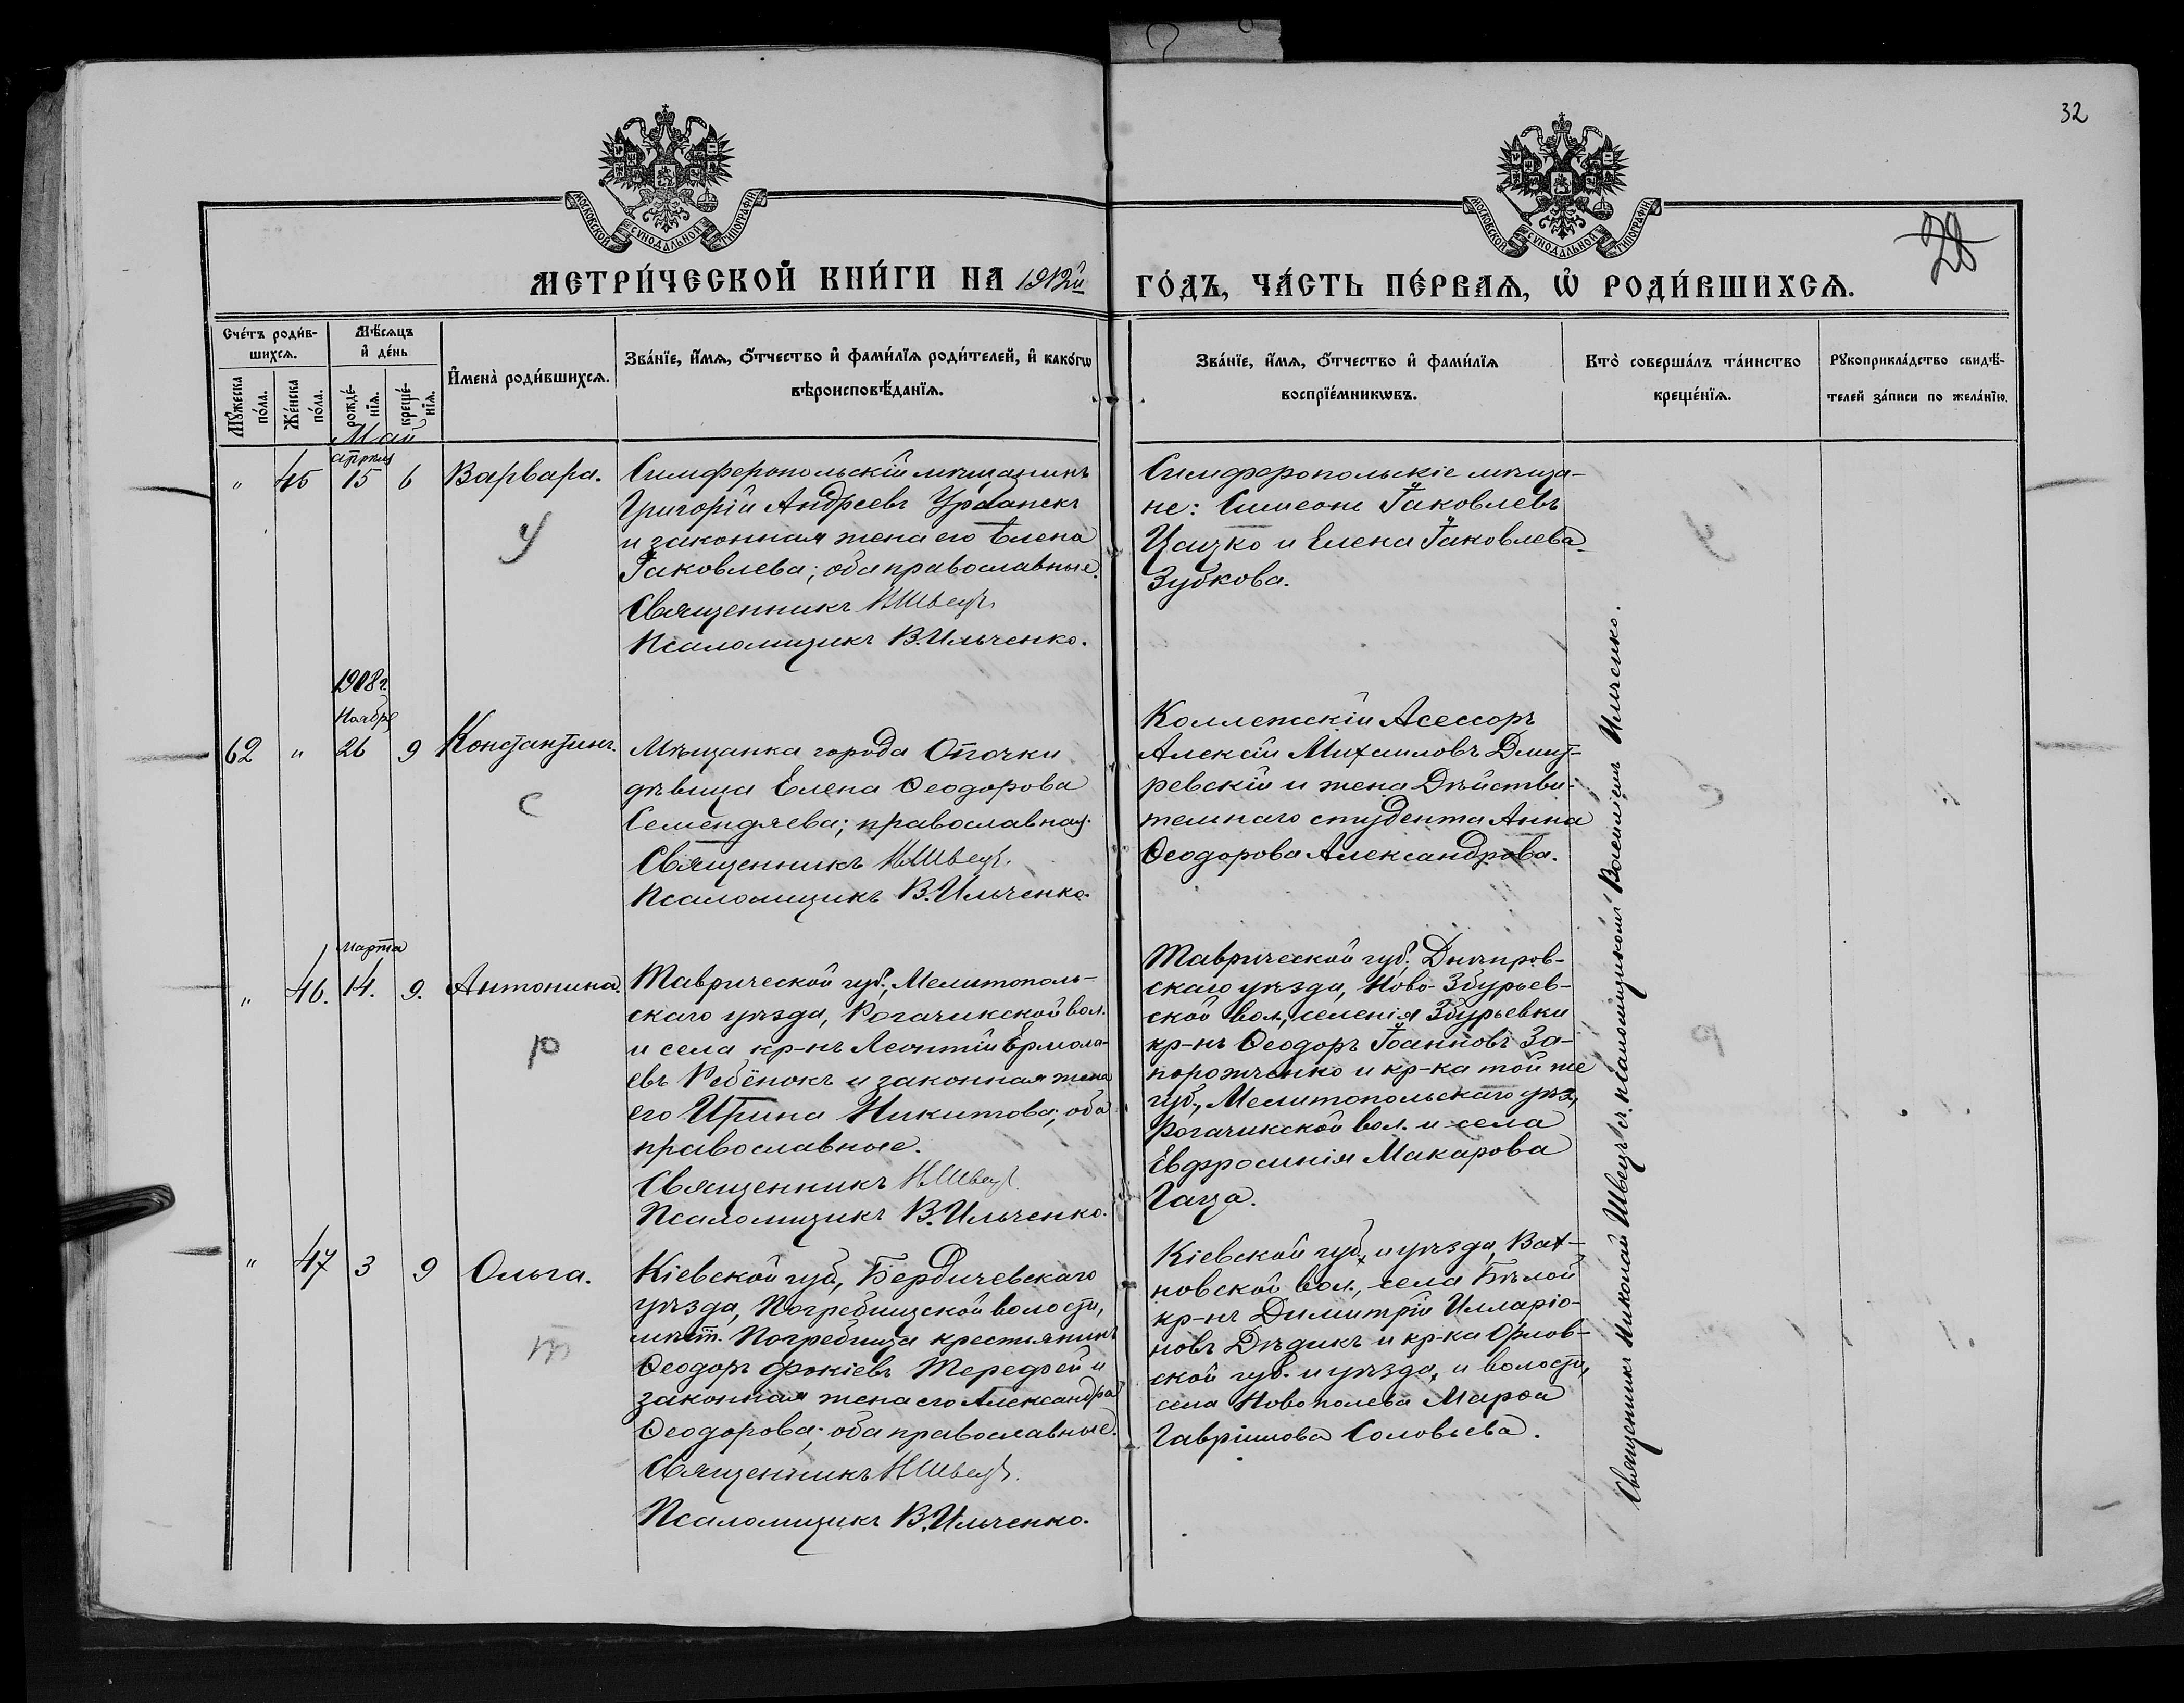 32
28
МОСКОВСКОЙ СѴНОДАЛЬНОЙ ТИПОГРАФІИ
МОСКОВСКОЙ СѴНОДАЛЬНОЙ ТИПОГРАФІИ
МЕТРИ́ЧЕСКОЙ КНИ́ГИ НА 1913й ГО́ДЪ, ЧА́СТЬ ПЕ́РВАѦ, Ѡ҆ РОДИ́ВШИХСѦ.
Сче́тъ роди́в-
шихсѧ.
Мꙋжеска по́ла.
Же́нска по́ла.
Мѣ́сѧцъ
и҆ де́нь
рожде́-
нїѧ.
креще́-
нїѧ.
И҆мена̀ роди́вшихсѧ.
Зва́нїе, и҆́мѧ, ѻ҆́тчество и҆ фами́лїѧ роди́телей, и҆ како́гѡ
вѣроисповѣ́данїѧ.
Зва́нїе, и҆́мѧ, ѻ҆́тчество и҆ фами́лїѧ
воспрїе́мникѡвъ.
Кто̀ соверша́лъ та́инство
креще́нїѧ.
Рꙋкоприкла́дство свидѣ́-
телей за́писи по жела́нїю.
Май
апрѣля
" 45 15 6 Варвара.
Симферопольскій мѣщанинъ
Григорій Андреевъ Урбанскъ
и законная жена его Елена
Іаковлева; оба православные.
Священникъ Н.Швецъ.
Псаломщикъ В.Ильченко.
Симферопольскіе мѣща-
не: Симеонъ Іаковлевъ
Цацко и Елена Іаковлева
Зубкова.
У
1908 г.
Ноября
62 " 26 9 Константинъ.
Мѣщанка города Опочки
дѣвица Елена Ѳеодорова
Семендяева; православная.
Священникъ Н.Швецъ.
Псаломщикъ В.Ильченко.
Коллежскій Асессоръ
Алексій Михаиловъ Дмит-
ревскій и жена Дѣйстви-
тельнаго студента Анна
Ѳеодорова Александрова.
С
марта
" 46. 14. 9. Антонина.
Таврической губ., Мелитополь-
скаго уѣзда, Рогачикской вол.
и села кр-нъ Леонтій Ермола-
евъ Ребёнокъ и законная жена
его Ирина Никитова; оба
православные.
Священникъ Н.Швецъ
Псаломщикъ В.Ильченко.
Таврической губ., Днѣпров-
скаго уѣзда, Ново-Збурьев-
ской вол., селенія Збурьевки
кр-нъ Ѳеодоръ Іоанновъ За-
порожченко и кр-ка той же
губ., Мелитопольскаго уѣз.,
Рогачикской вол. и села
Евфросинія Макарова
Гаца.
р
" 47 3 9 Ольга.
Кіевской губ., Бердичевскаго
уѣзда, Погребищской волости,
мѣст. Погребища крестьянинъ
Ѳеодоръ Фокіевъ Тередзей и
законная жена его Александра
Ѳеодорова; оба православные.
Священникъ Н.Швецъ.
Псаломщикъ В.Ильченко.
Кіевской губ. и уѣзда, Вах-
новской вол., села Бѣлой
кр-нъ Димитрій Илларіо-
новъ Дѣдикъ и кр-ка Орлов-
ской губ. и уѣзда, и волости,
села Новополева Марѳа
Гавріилова Соловьева.
т
Священникъ Николай Швецъ съ псаломщикомъ Василіемъ Ильченко.